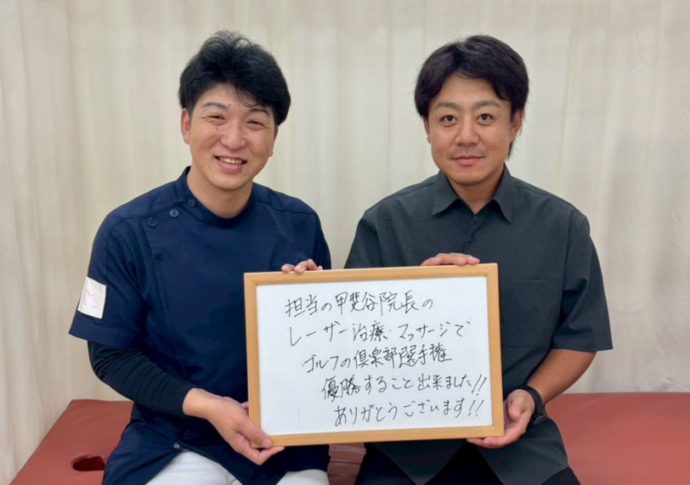 担当の甲斐谷院長の
レーザー治療、マッサージで
ゴルフの倶楽部選手権
優勝すること出来ました!!
ありがとうございます!!